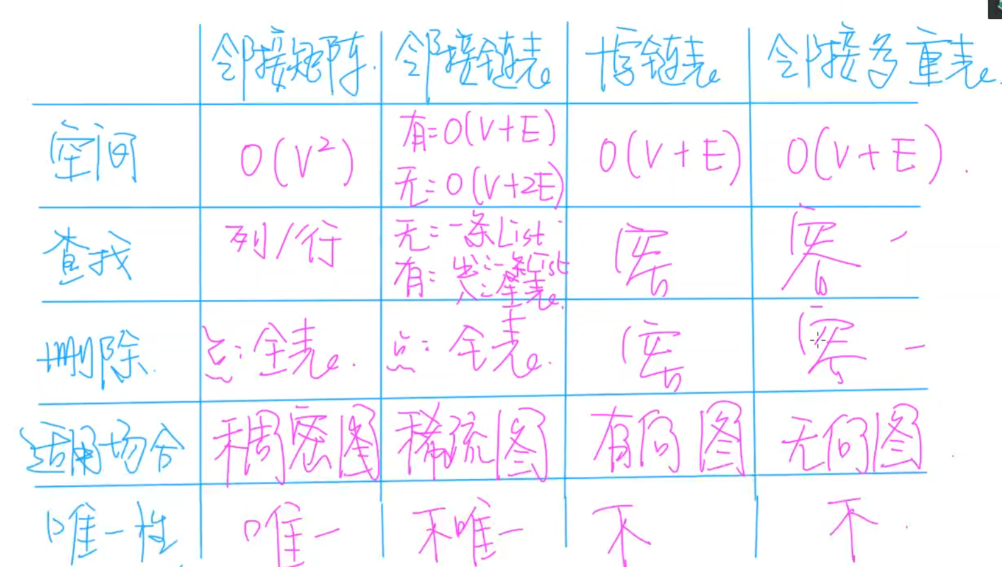 邻接矩阵. 邻接链表。 十字链表。 邻接多重表。
空间 O(V²) 有=O(V+E) O(V+E) O(V+E).
无=O(V+2E)
查找 列/行 无=一条List
有=出=一条List
入=全表。
删除. 点:全表。 点:全表。
适用场合 稠密图 稀疏图 有向图 无向图
唯一性 唯一 不唯一 不 不.